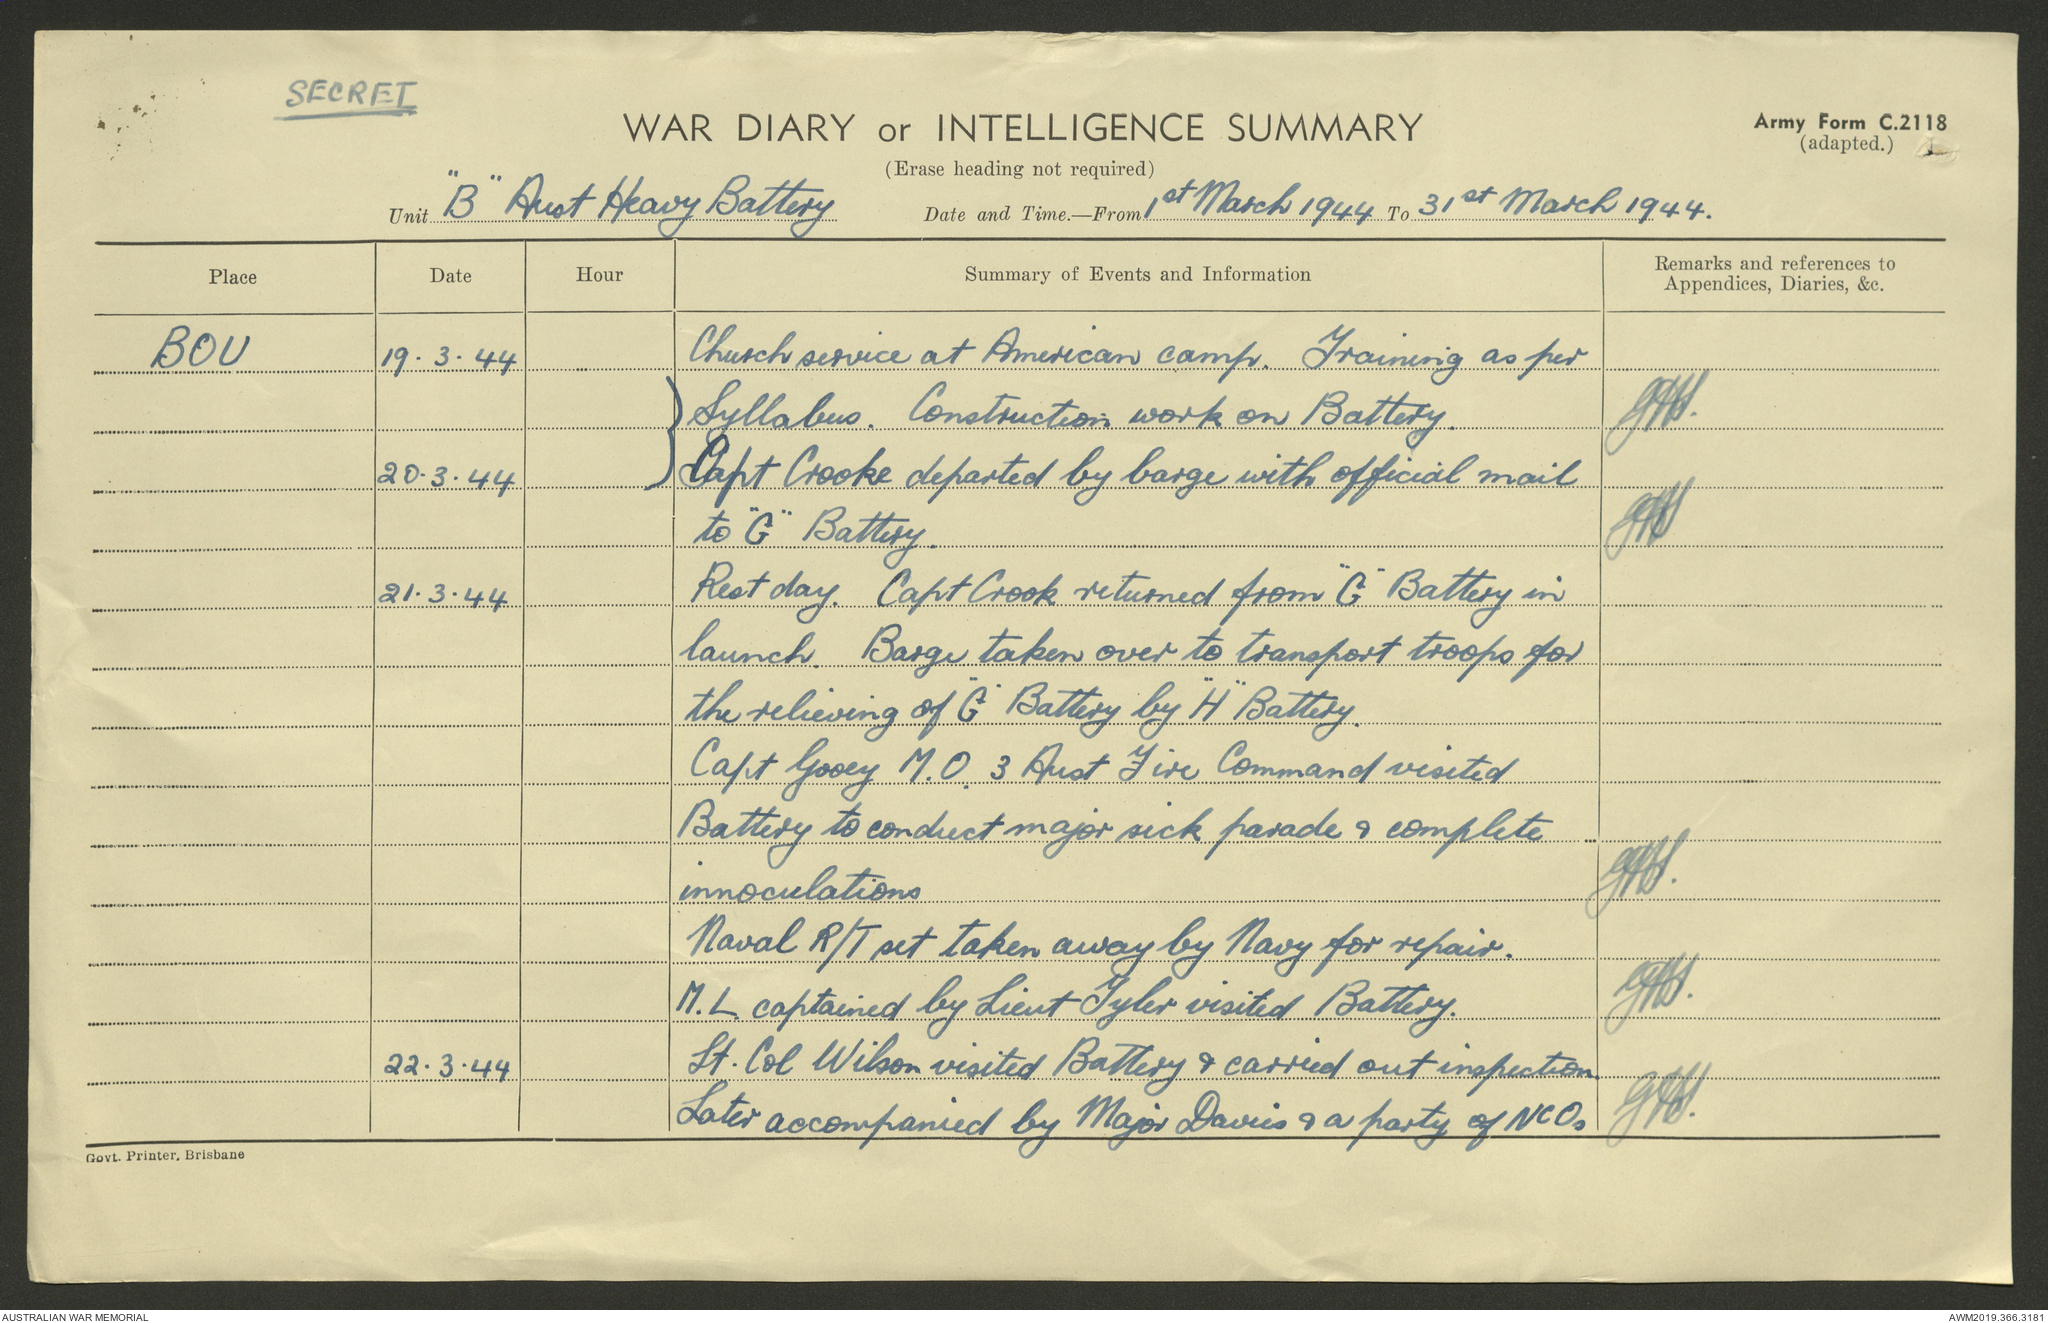 SECRET
WAR DIARY or INTELLIGENCE SUMMARY
Army Form C.2118
(adapted.)
(Erase heading not required)
Unit "B" Aust Heavy Battery Date and Time.—From 1st March 1944 To 31st March 1944.
Place Date Hour Summary of Events and Information Remarks and references to
Appendices, Diaries, &c.
BOU 19.3.44 Church service at American camp. Training as per
Syllabus. Construction work on Battery.
20.3.44 Capt Crooke departed by barge with official mail
to "G" Battery.
21.3.44 Rest day. Capt Crook returned from "G" Battery in
launch. Barge taken over to transport troops for
the relieving of "G" Battery by "H" Battery.
Capt Gooey M.O. 3 Aust Fire Command visited
Battery to conduct major sick parade & complete
innoculations
Naval R/T set taken away by Navy for repair.
M.L. captained by Lieut Tyler visited Battery.
22.3.44 Lt. Col Wilson visited Battery & carried out inspection.
Later accompanied by Major Davies & a party of NCOs
Govt. Printer, Brisbane
AUSTRALIAN WAR MEMORIAL AWM2019.366.3181